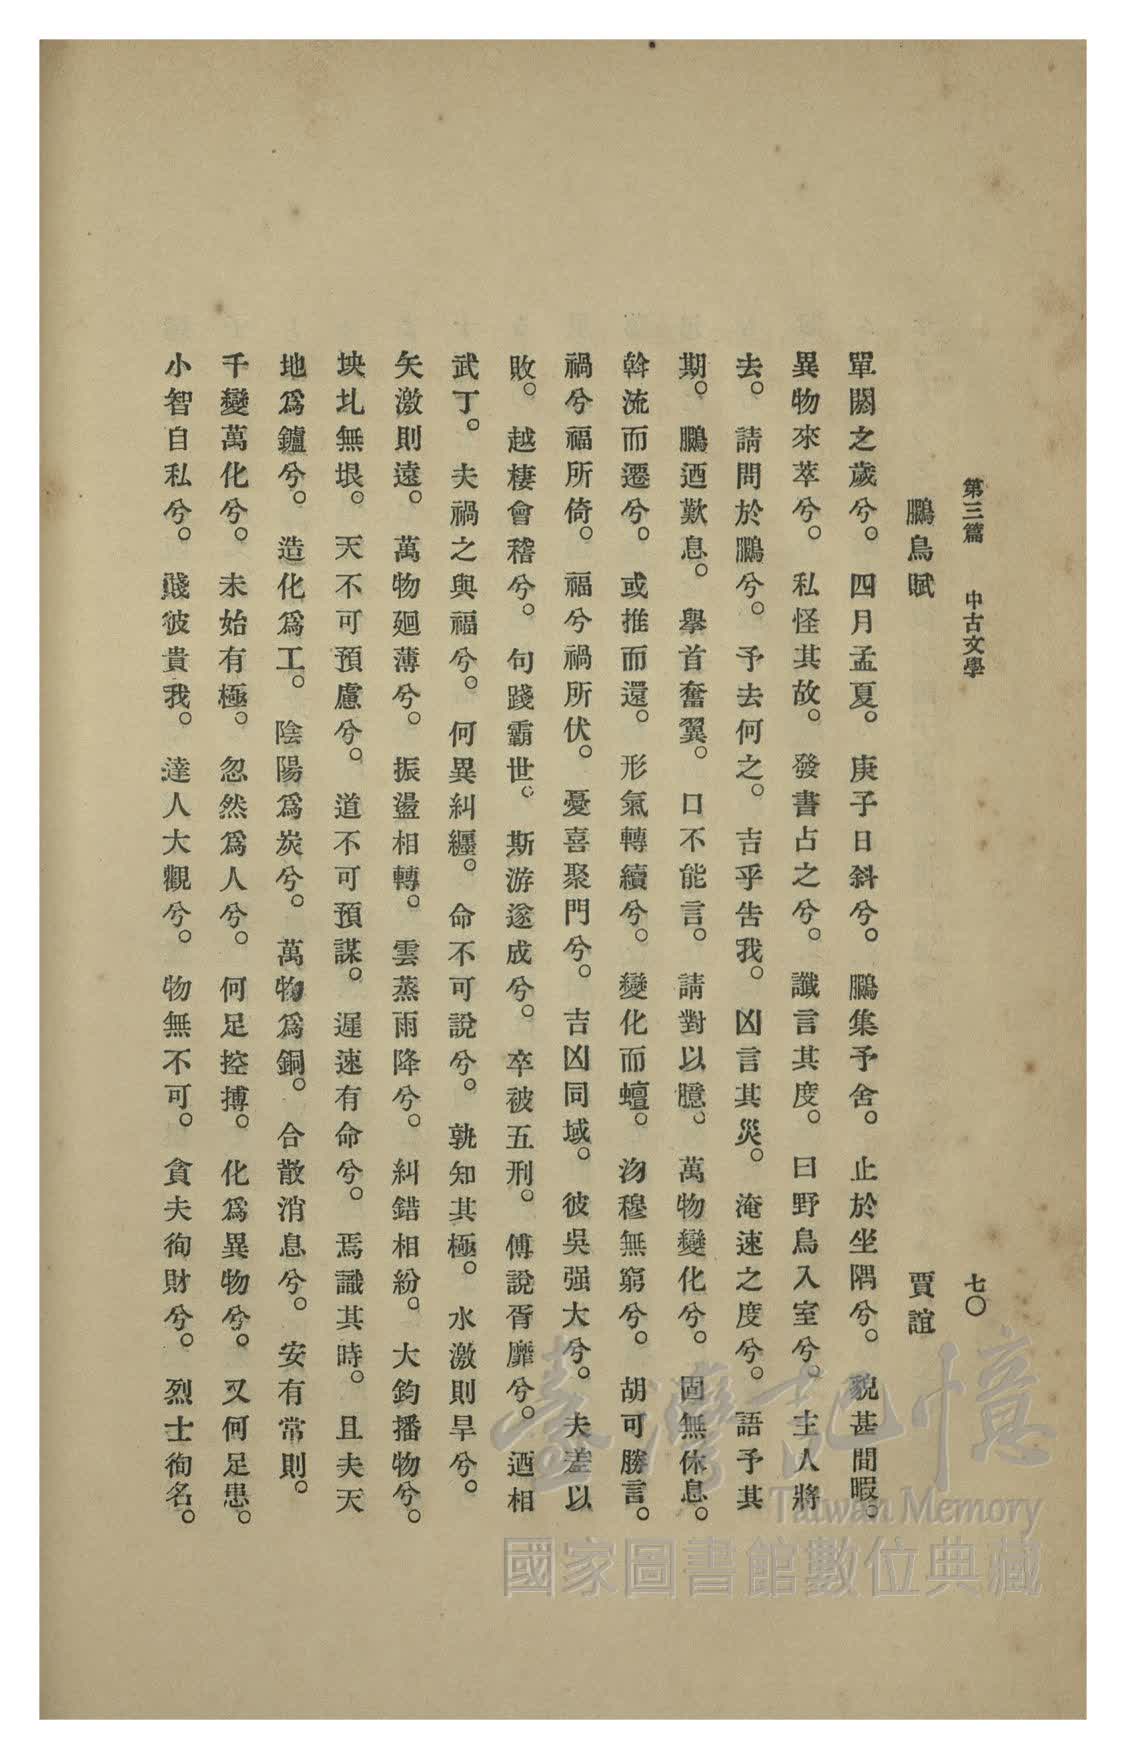 第三篇　中古文學　七〇
鵩鳥賦　賈誼
單閼之歲兮。四月孟夏。庚子日斜兮。鵩集予舍。止於坐隅兮。貌甚閒暇。
異物來萃兮。私怪其故。發書占之兮。讖言其度。曰野鳥入室兮。主人將
去。請問於鵩兮。予去何之。吉乎告我。凶言其災。淹速之度兮。語予其
期。鵩迺歎息。舉首奮翼。口不能言。請對以臆。萬物變化兮。固無休息。
斡流而遷兮。或推而還。形氣轉續兮。變化而蟺。沕穆無窮兮。胡可勝言。
禍兮福所倚。福兮禍所伏。憂喜聚門兮。吉凶同域。彼吳强大兮。夫差以
敗。越棲會稽兮。句踐霸世。斯游遂成兮。卒被五刑。傅說胥靡兮。迺相
武丁。夫禍之與福兮。何異糾纆。命不可說兮。孰知其極。水激則旱兮。
矢激則遠。萬物廻薄兮。振盪相轉。雲蒸雨降兮。糾錯相紛。大鈞播物兮。
坱圠無垠。天不可預慮兮。道不可預謀。遲速有命兮。焉識其時。且夫天
地爲鑪兮。造化爲工。陰陽爲炭兮。萬物爲銅。合散消息兮。安有常則。
千變萬化兮。未始有極。忽然爲人兮。何足控摶。化爲異物兮。又何足患。
小智自私兮。賤彼貴我。達人大觀兮。物無不可。貪夫徇財兮。烈士徇名。
臺灣記憶
Taiwan Memory
國家圖書館數位典藏